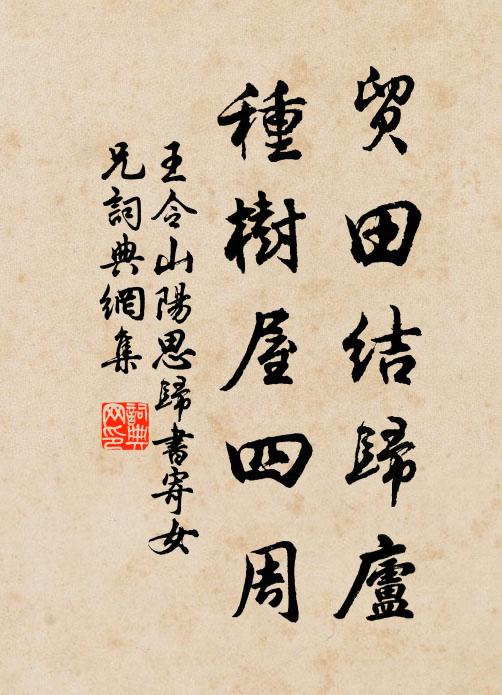 貿田結歸廬
種樹屋四周
王令山陽思歸書寄女
兄詞典網集
詞典
网印